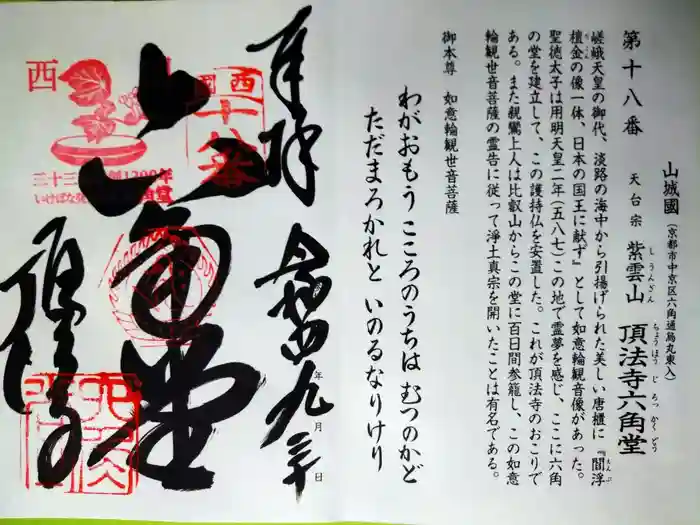 山城國(京都市中京区六角通烏丸東入)
第十八番 天台宗 紫雲山 頂法寺六角堂
しうんざん ちょうほうじ ろっかくどう
嵯峨天皇の御代、淡路の海中から引揚げられた美しい唐櫃に『閻浮
えんぶ
檀金の像一体、日本の国王に献ず』として如意輪観音像があった。
聖徳太子は用明天皇二年(五八七)この地で霊夢を感じ、ここに六角
の堂を建立して、この護持仏を安置した。これが頂法寺のおこりで
ある。また親鸞上人は比叡山からこの堂に百日間参籠し、この如意
輪観世音菩薩の霊告に従って浄土真宗を開いたことは有名である。
御本尊 如意輪観世音菩薩
わがおもう こころのうちは むつのかど
ただまろかれと いのるなりけり
奉拝
年九月 日
西国
十八番
六角堂
西
三十三
1300年
いけばな発
頂法寺